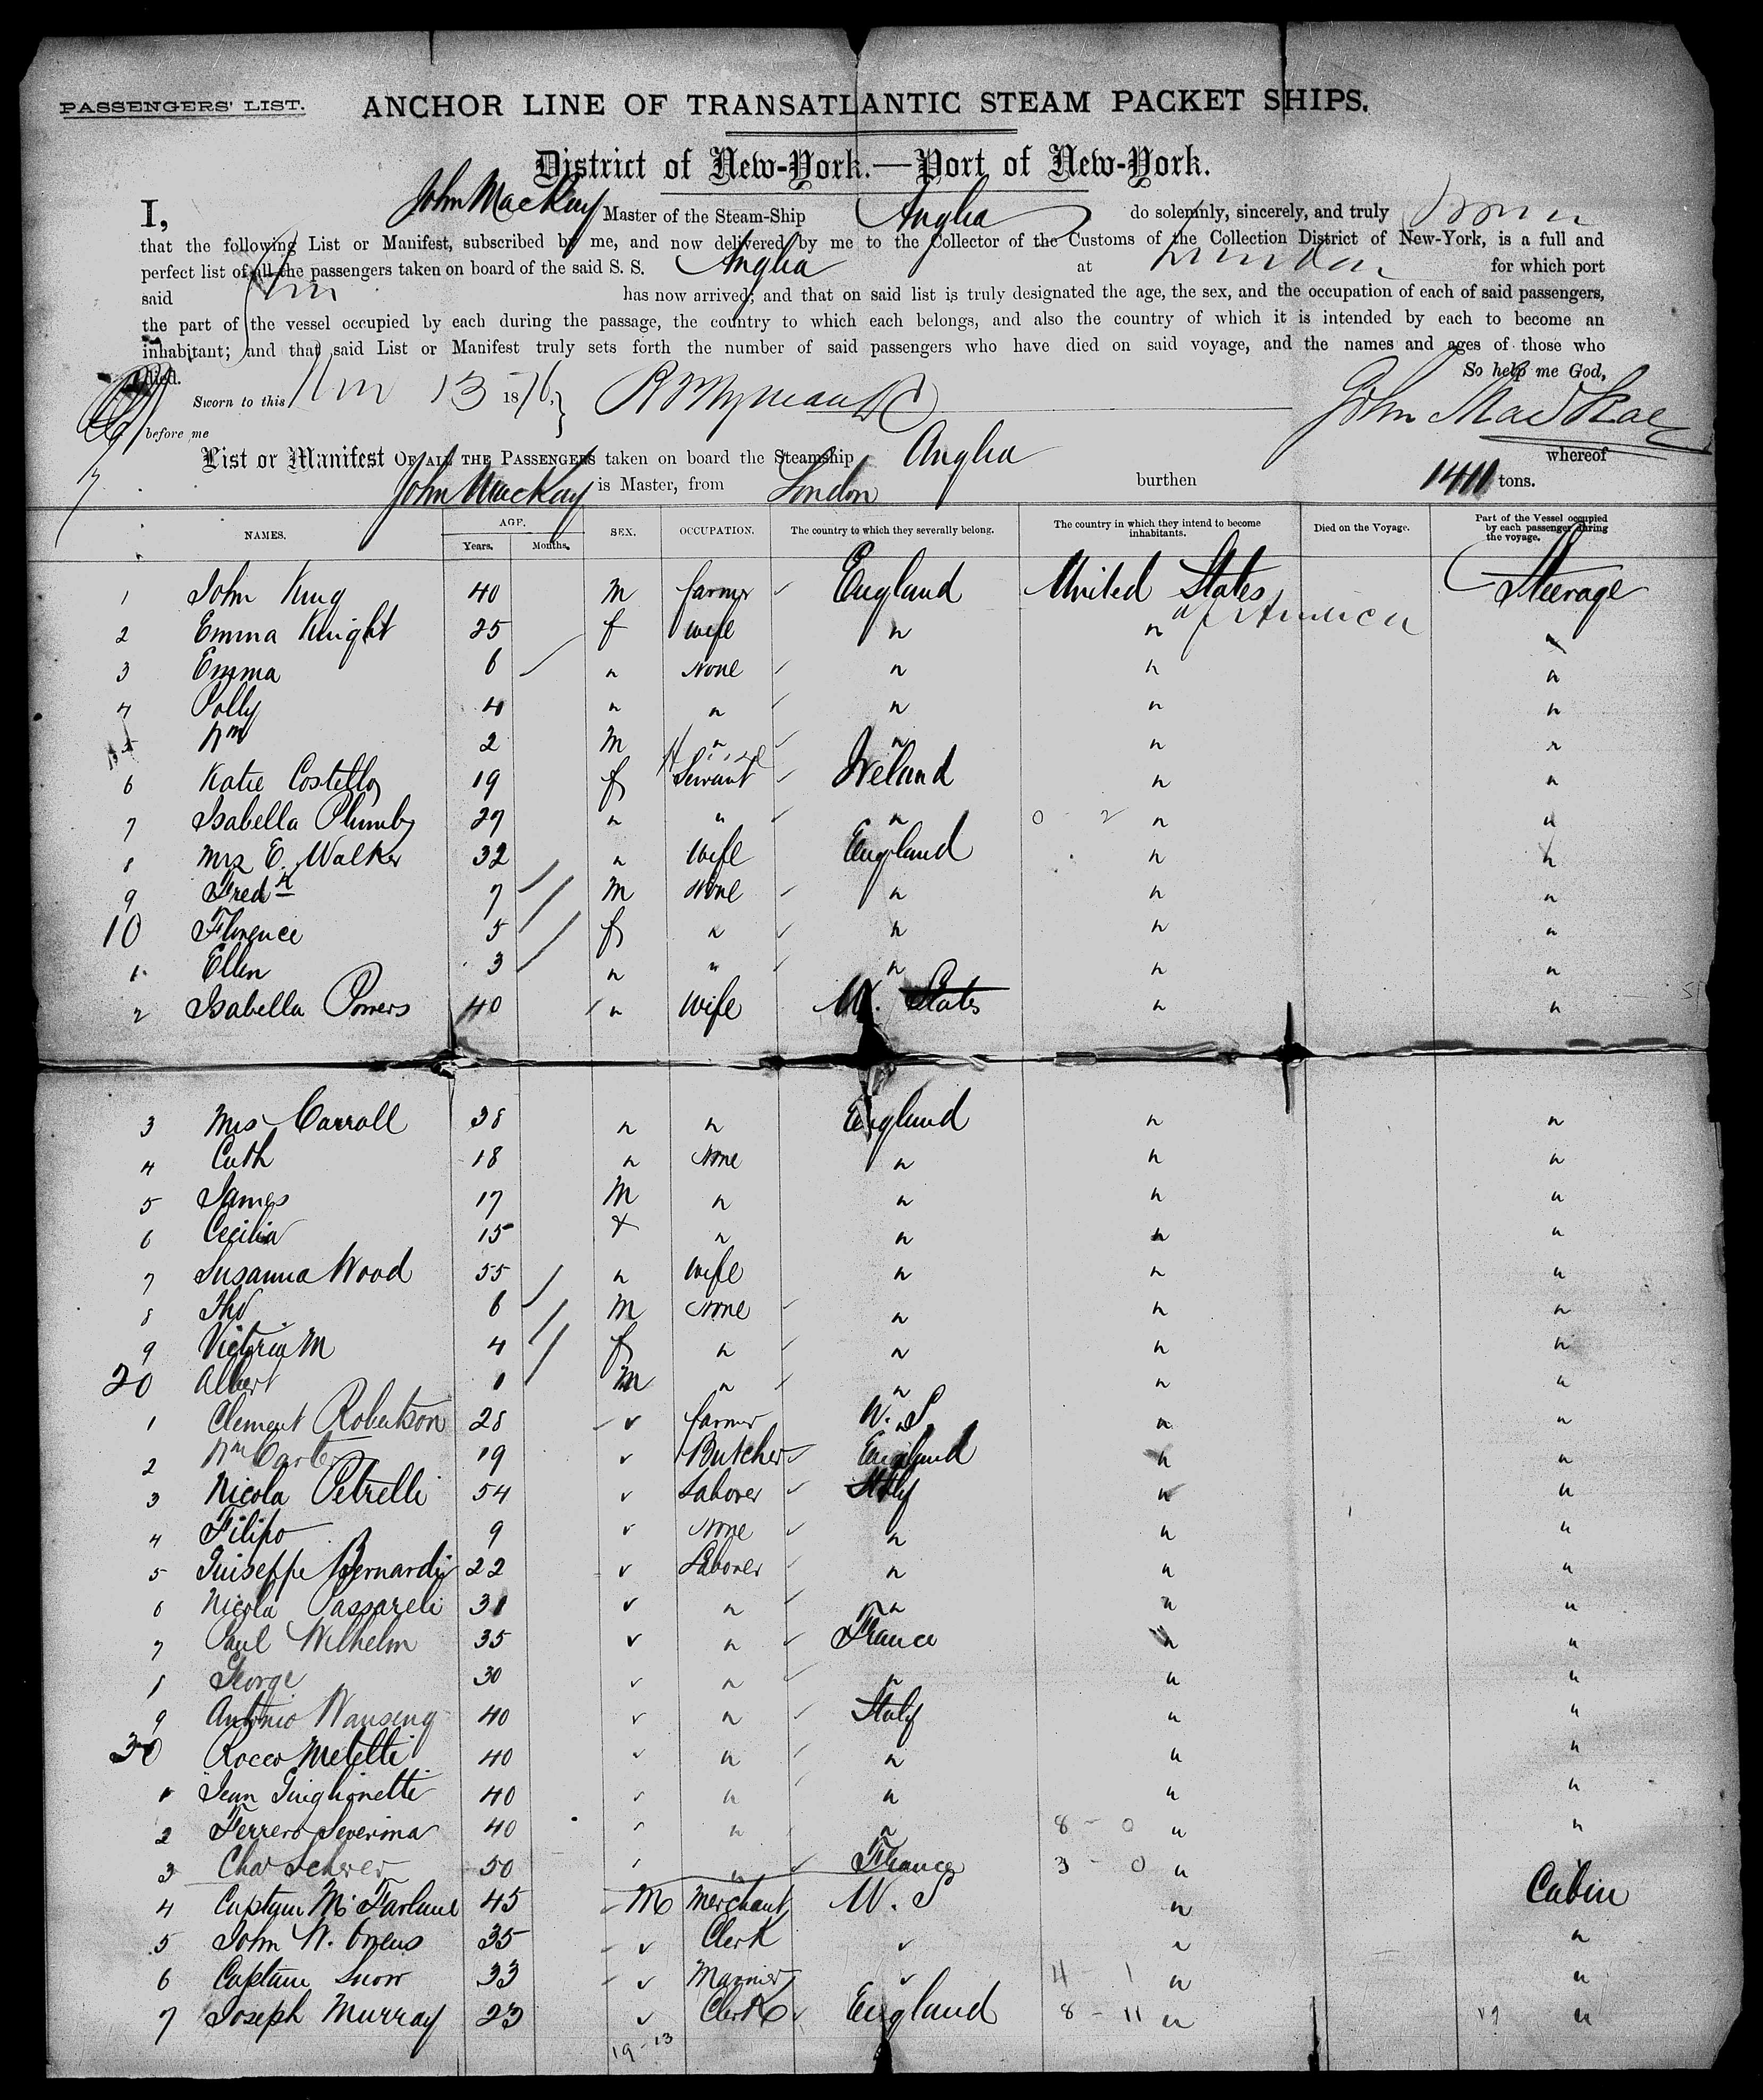 PASSENGERS' LIST. ANCHOR LINE OF TRANSATLANTIC STEAM PACKET SHIPS.
District of New-York.—Port of New-York.
I, John Mackay Master of the Steam-Ship Anglia do solemnly, sincerely, and truly
that the following List or Manifest, subscribed by me, and now delivered by me to the Collector of the Customs of the Collection District of New-York, is a full and
perfect list of all the passengers taken on board of the said S. S. Anglia at London for which port
said has now arrived; and that on said list is truly designated the age, the sex, and the occupation of each of said passengers,
the part of the vessel occupied by each during the passage, the country to which each belongs, and also the country of which it is intended by each to become an
inhabitant; and that said List or Manifest truly sets forth the number of said passengers who have died on said voyage, and the names and ages of those who
died. So help me God,
Sworn to this 13 1876,
before me John Mackay
List or Manifest OF ALL THE PASSENGERS taken on board the Steamship Anglia whereof
John Mackay is Master, from London burthen 1411 tons.
NAMES. AGE. Years. Months. SEX. OCCUPATION. The country to which they severally belong. The country in which they intend to become inhabitants. Died on the Voyage. Part of the Vessel occupied by each passenger during the voyage.
1 John King 40 m farmer England United States of America Steerage
2 Emma Knight 25 f wife " " "
3 Emma 6 " None " " "
4 Polly 4 " " " " "
5 Wm 2 m " " " "
6 Katie Costello 19 f House Servant Ireland " "
7 Isabella Plumby 29 " " " 0 - 2 " "
8 Mrs E. Walker 32 " wife England " "
9 Fredk 7 m None " " "
10 Florence 5 f " " " "
1 Ellen 3 " " " " "
2 Isabella Powers 40 " Wife U. States " "
3 Mrs Carroll 38 " " England " "
4 Cath 18 " None " " "
5 James 17 m " " " "
6 Cecilia 15 f " " " "
7 Susanna Wood 55 " wife " " "
8 Tho 6 m None " " "
9 Victoria M 4 f " " " "
20 Albert 1 m " " " "
1 Clement Robertson 28 " farmer U. S " "
2 Wm Carter 19 " Butcher England " "
3 Nicola Petrelli 54 " Laborer Italy " "
4 Filipo 9 " None " " "
5 Guiseppe Bernardi 22 " Laborer " " "
6 Nicola Passareli 31 " " " " "
7 Paul Wilhelm 35 " " France " "
8 George 30 " " " " "
9 Antonio 40 " " Italy " "
30 Rocco Meletti 40 " " " " "
1 Jean Guiglionetti 40 " " " " "
2 Ferrero Severina 40 " " " 8 - 0 " "
3 Chas Scherer 50 " " France 3 - 0 " "
4 Captain McFarlane 45 M Merchant U. S " Cabin
5 John W. Owens 35 " Clerk " " "
6 Captain Snow 33 " Mariner " 4 - 1 " "
7 Joseph Murray 23 " Clerk England 8 - 11 " "
19 - 13